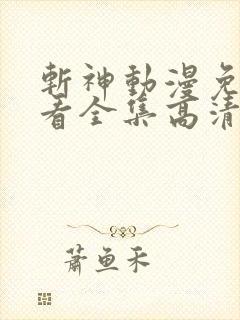 斬神動漫免
看全集高清
蕭魚禾